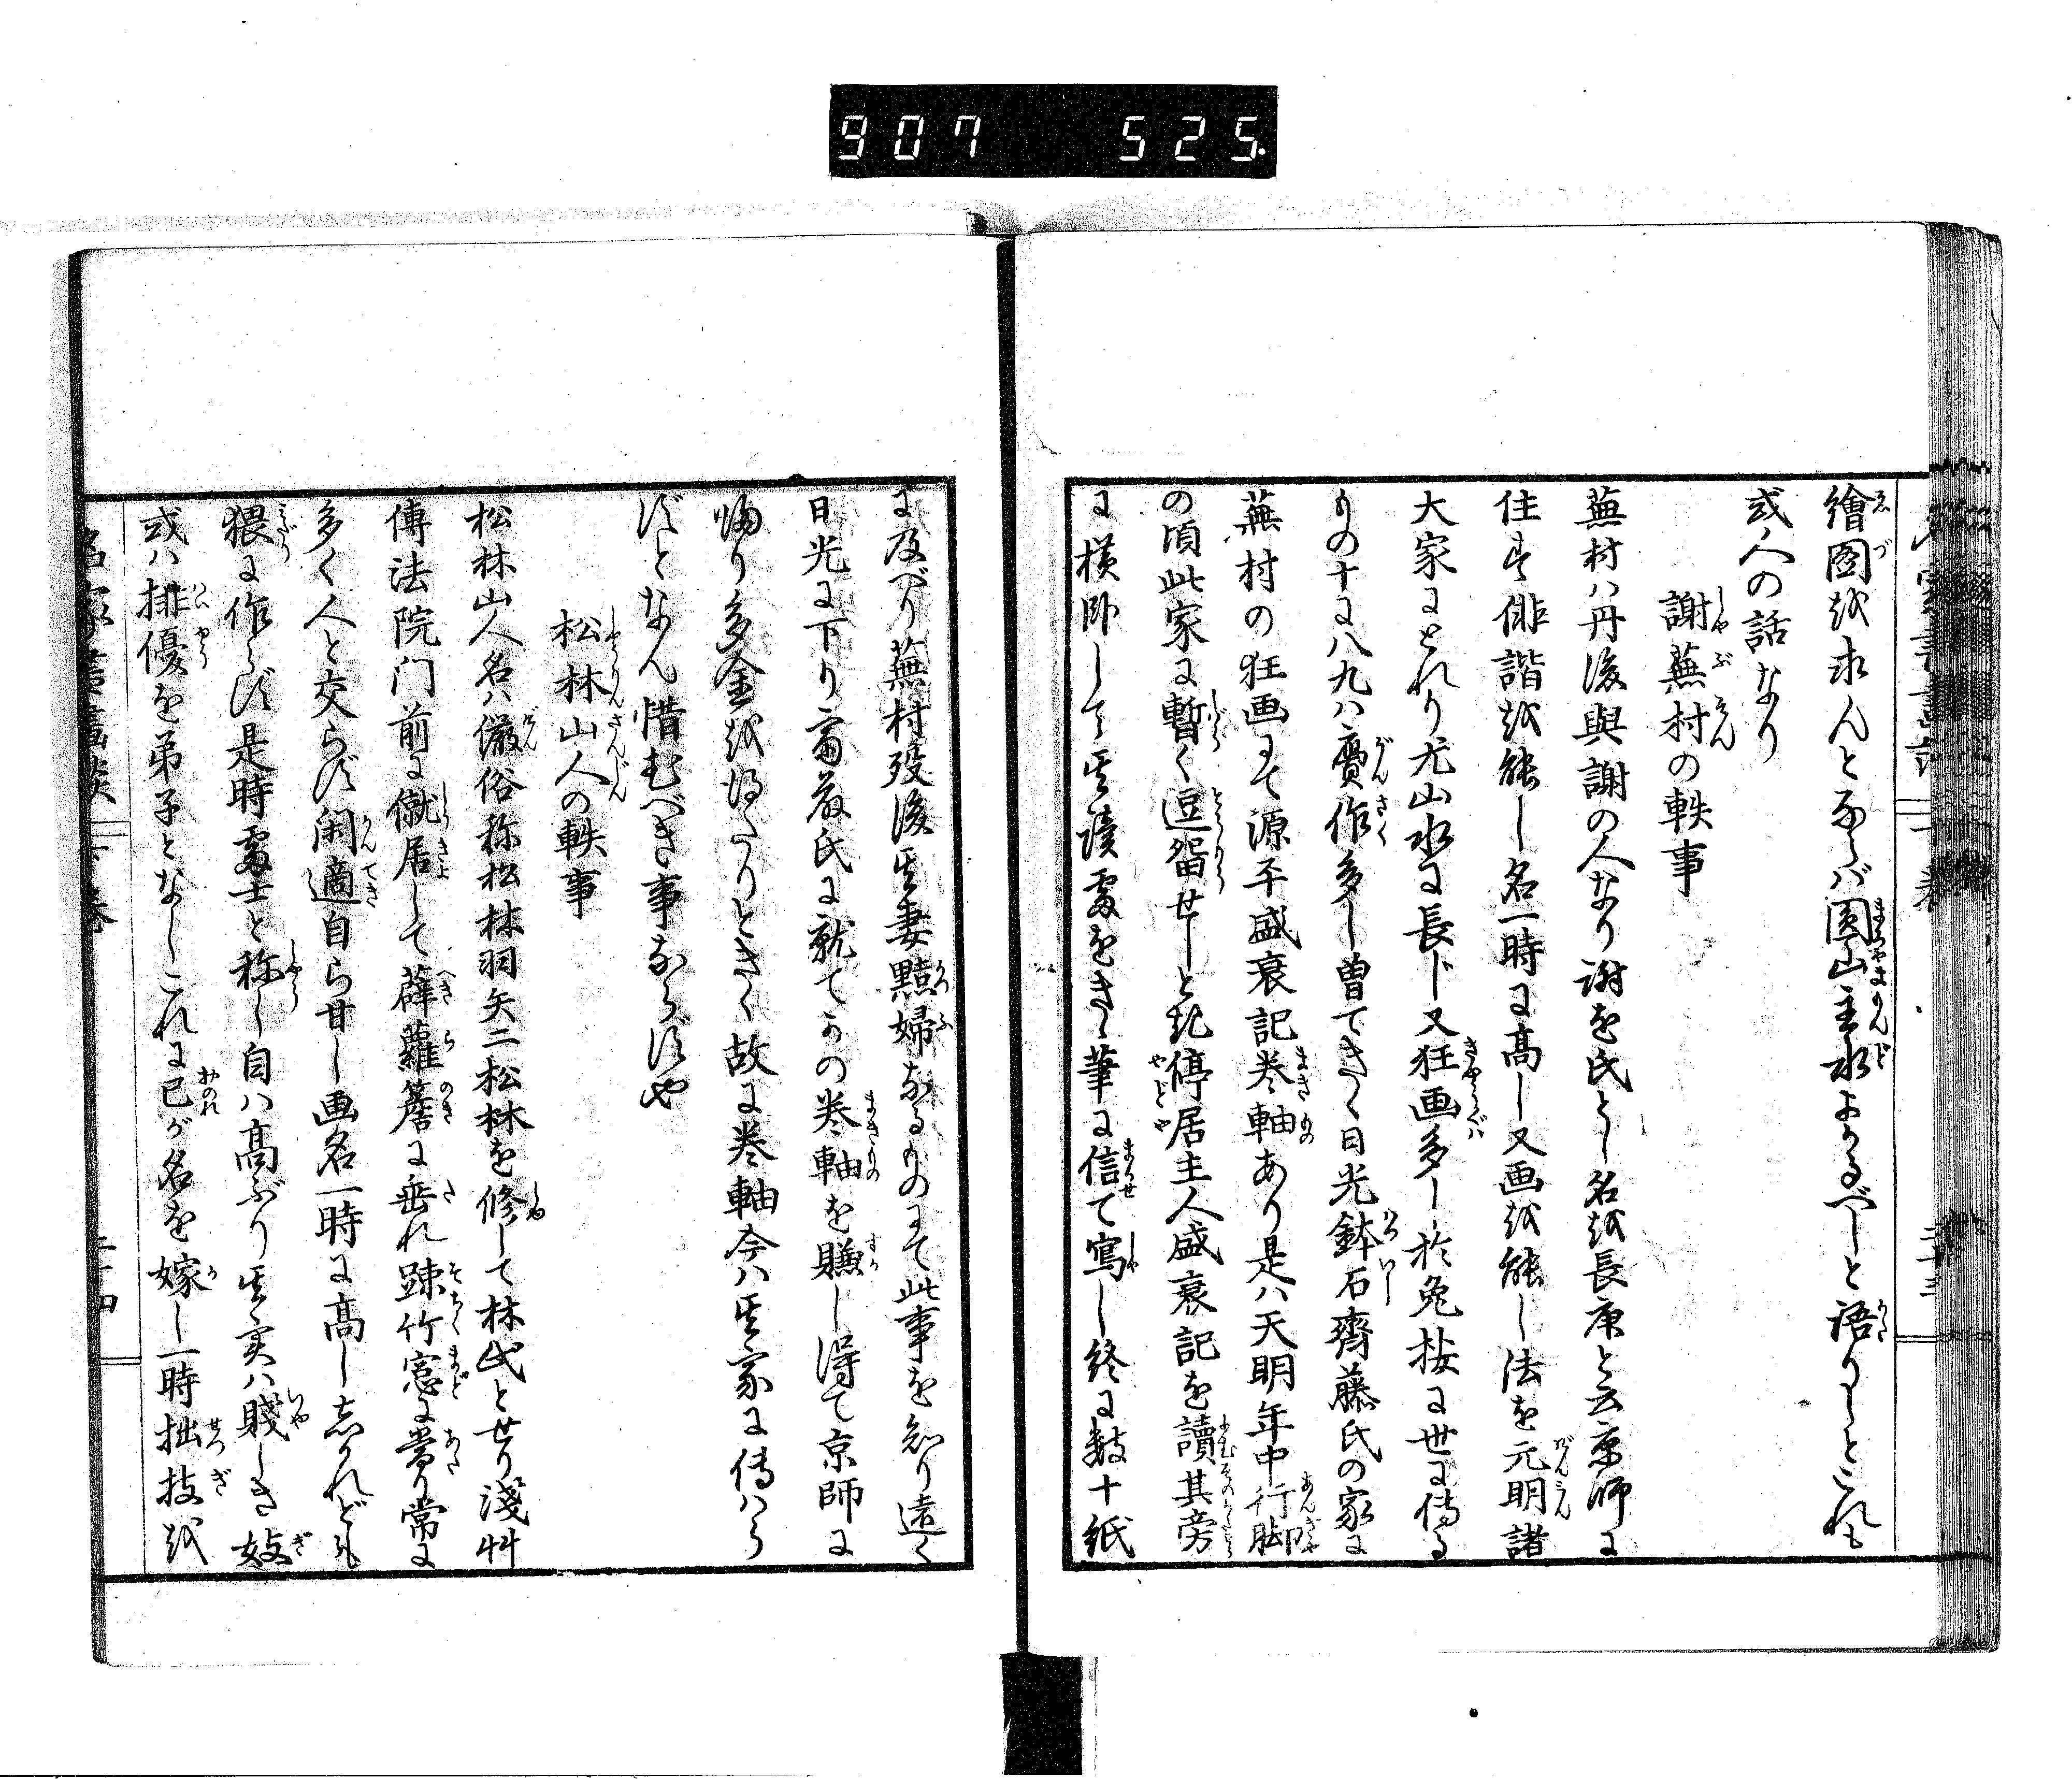 907 525
繪圖を求んとならば圓山主水よかるべしと語りしとこれも
或人の話なり
謝蕪村の軼事
蕪村ハ丹後與謝の人なり謝を氏とし名を長庚と云京師に
住す俳諧を能し名一時に高し又画を能し法を元明諸
大家にとれり尤山水に長じ又狂画多し於兔拔に世に傳る
もの十に八九ハ贋作多し曽てきく日光鉢石齊藤氏の家に
蕪村の狂画にて源平盛衰記巻軸あり是ハ天明年中行脚
の頃此家に暫く逗畱せしとぞ停居主人盛衰記を讀其旁
に横卧して其讀處をきゝ筆に信て寫し終に数十紙
に及べり蕪村歿後其妻黠婦なるものにて此事を知り遠く
日光に下り齋藤氏に就てかの巻軸を賺し得て京師に
歸り多金を得たりときく故に巻軸今ハ其家に傳ハら
ずとなん惜むべき事ならずや
松林山人の軼事
松林山人名ハ儼俗称松林羽矢二松林を修して林氏とせり淺艸
傳法院门前に僦居して薜蘿簷に垂れ踈竹窓に當り常に
多く人と交らず閑適自ら甘し画名一時に高し志かれども
猥に作らず是時處士と称し自ハ高ぶり其実ハ賤しき妓
或ハ排優を弟子となしこれに已が名を嫁し一時拙技を
名家書畫談 下巻